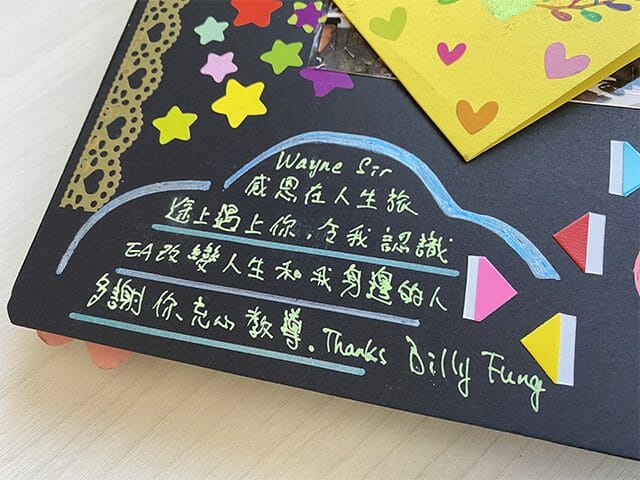 Wayne Sir
感恩在人生旅
途上遇上你,令我認識
EA改變人生和我身邊的人
多謝你、充心教導。Thanks Billy Fung